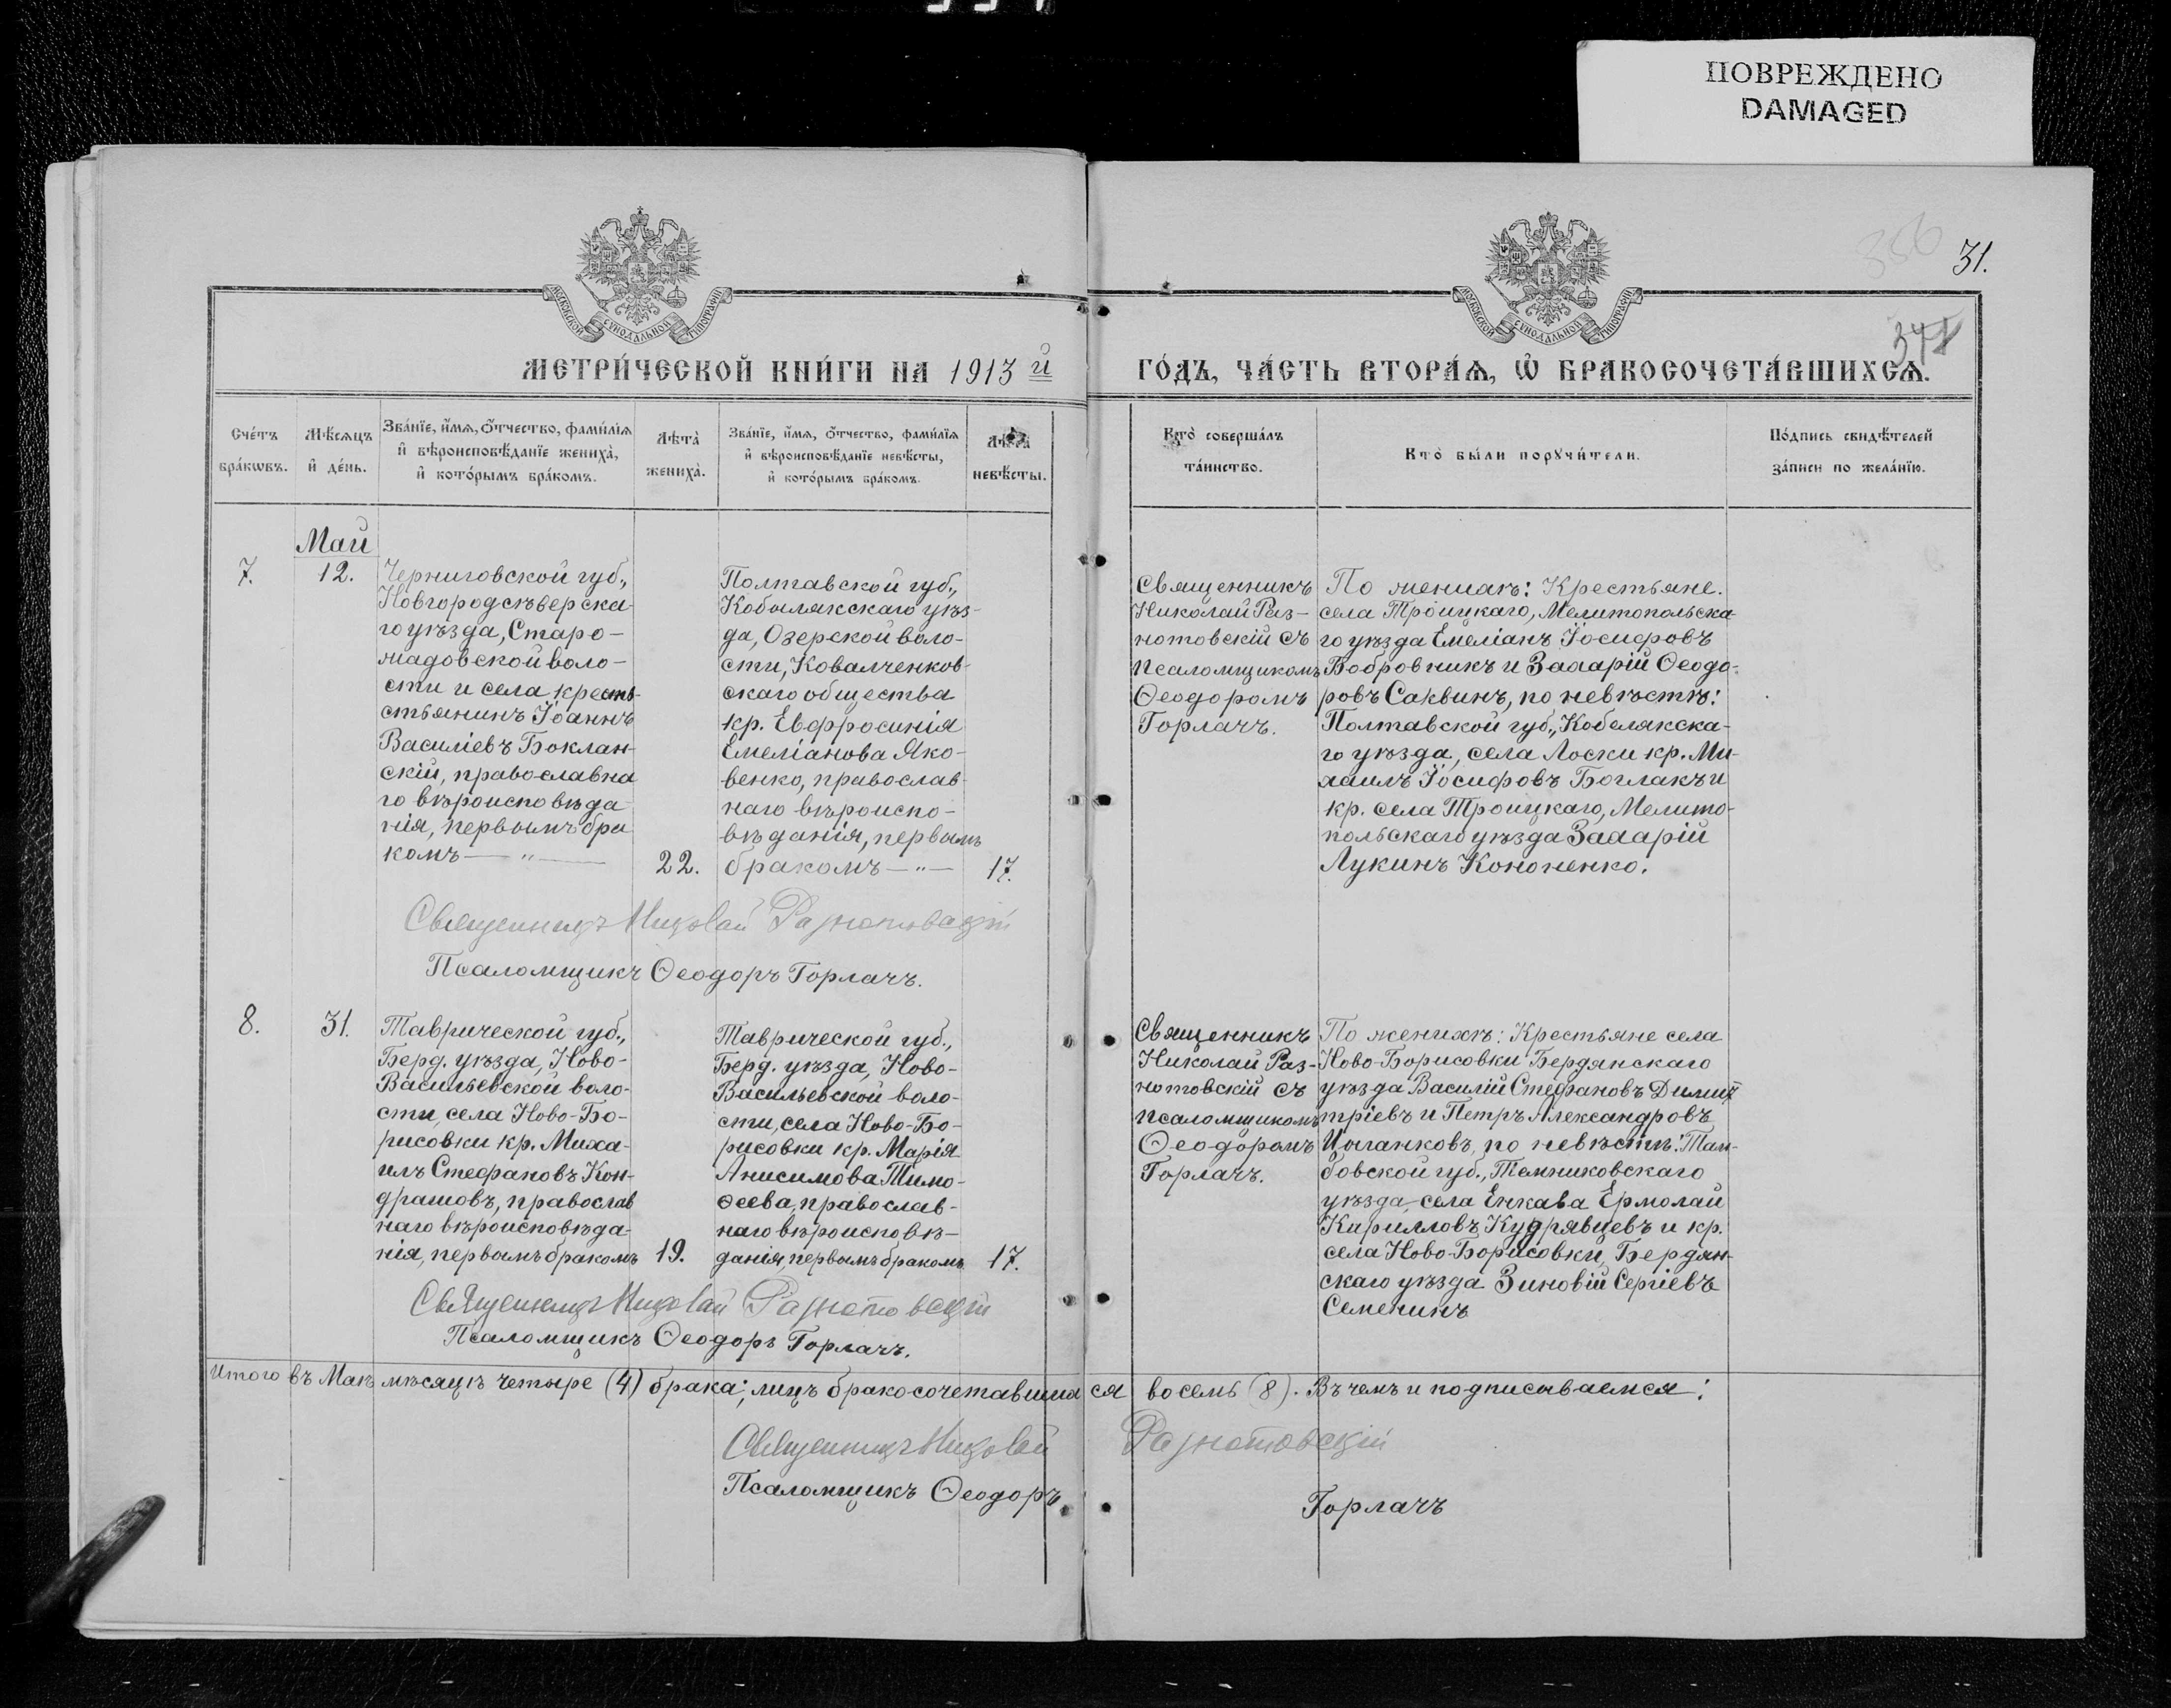 ПОВРЕЖДЕНО
DAMAGED
31.
МОСКОВСКОЙ СѴНОДАЛЬНОЙ ТИПОГРАФІИ
МОСКОВСКОЙ СѴНОДАЛЬНОЙ ТИПОГРАФІИ
МЕТРИ́ЧЕСКОЙ КНИ́ГИ НА 1913 й
ГО́ДЪ, ЧА́СТЬ ВТОРА́Ѧ, Ѽ БРАКОСОЧЕТА́ВШИХСѦ.
Сче́тъ бра́кѡвъ.
Мѣ́сяцъ и҆ де́нь.
Зва́нїе, и҆́мѧ, ѻ҆́тчество, фами́лїѧ
и҆ вѣроисповѣ́данїе жениха̀,
и҆ кото́рымъ бра́комъ.
Лѣта̀ жениха̀.
Зва́нїе, и҆́мѧ, ѻ҆́тчество, фами́лїѧ
и҆ вѣроисповѣ́данїе невѣ́сты,
и҆ кото́рымъ бра́комъ.
Лѣта̀ невѣ́сты.
Кто̀ соверша́лъ
та́инство.
Кто̀ бы́ли порꙋчи́тели.
По́дпись свидѣ́телей
за́писи по жела́нїю.
Май
7.
12.
Черниговской губ.,
Новгородсѣверска
го уѣзда, Старо-
гладовской воло-
сти и села кресть
стьянинъ Іоаннъ
Василіевъ Боклан-
скій, православна
го вѣроисповѣда
нія, первымъ бра
комъ — " —
22.
Полтавской губ.,
Кобылякскаго уѣз-
да, Озерской воло-
сти, Ковалченков-
скаго общества
кр. Евфросинія
Емеліанова Яко-
венко, православ-
наго вѣроиспо-
вѣданія, первымъ
бракомъ — " —
17.
Священникъ
Николай Раз-
нотовскій съ
псаломщикомъ
Ѳеодоромъ
Горлачъ.
По женихѣ: Крестьяне
села Троицкаго, Мелитопольска-
го уѣзда Емеліанъ Іосифовъ
Бобровникъ и Захарій Ѳеодо-
ровъ Саквинъ, по невѣстѣ:
Полтавской губ., Кобелякска-
го уѣзда, села Лоски кр. Ми-
хаилъ Іосифовъ Боглакъ и
кр. села Троицкаго, Мелито-
польскаго уѣзда Захарій
Лукинъ Кононенко.
Священникъ Николай Разнотовскій
Псаломщикъ Ѳеодоръ Горлачъ.
8.
31.
Таврической губ.,
Берд. уѣзда, Ново-
Васильевской воло-
сти, села Ново-Бо-
рисовки кр. Миха-
илъ Стефановъ Кон-
драшовъ, православ
наго вѣроисповѣда-
нія, первымъ бракомъ
19.
Таврической губ.,
Берд. уѣзда, Ново-
Васильевской воло-
сти, села Ново-Бо-
рисовки кр. Марія
Анисимова Тимо-
ѳеева, православ-
наго вѣроисповѣ-
данія, первымъ бракомъ
17.
Священникъ
Николай Раз-
нотовскій съ
псаломщикомъ
Ѳеодоромъ
Горлачъ.
По женихѣ: Крестьяне села
Ново-Борисовки Бердянскаго
уѣзда Василій Стефановъ Дими
тріевъ и Петръ Александровъ
Цыганковъ, по невѣстѣ: Там-
бовской губ., Темниковскаго
уѣзда, села Енкава Ермолай
Кирилловъ Кудрявцевъ и кр.
села Ново-Борисовки, Бердян-
скаго уѣзда Зиновій Сергіевъ
Семенинъ
Священникъ Николай Разнотовскій
Псаломщикъ Ѳеодоръ Горлачъ.
Итого въ Маѣ мѣсяцѣ четыре (4) брака; лицъ бракосочетавшихся восемь (8). Въ чемъ и подписываемся:
Священникъ Николай Разнотовскій
Псаломщикъ Ѳеодоръ Горлачъ